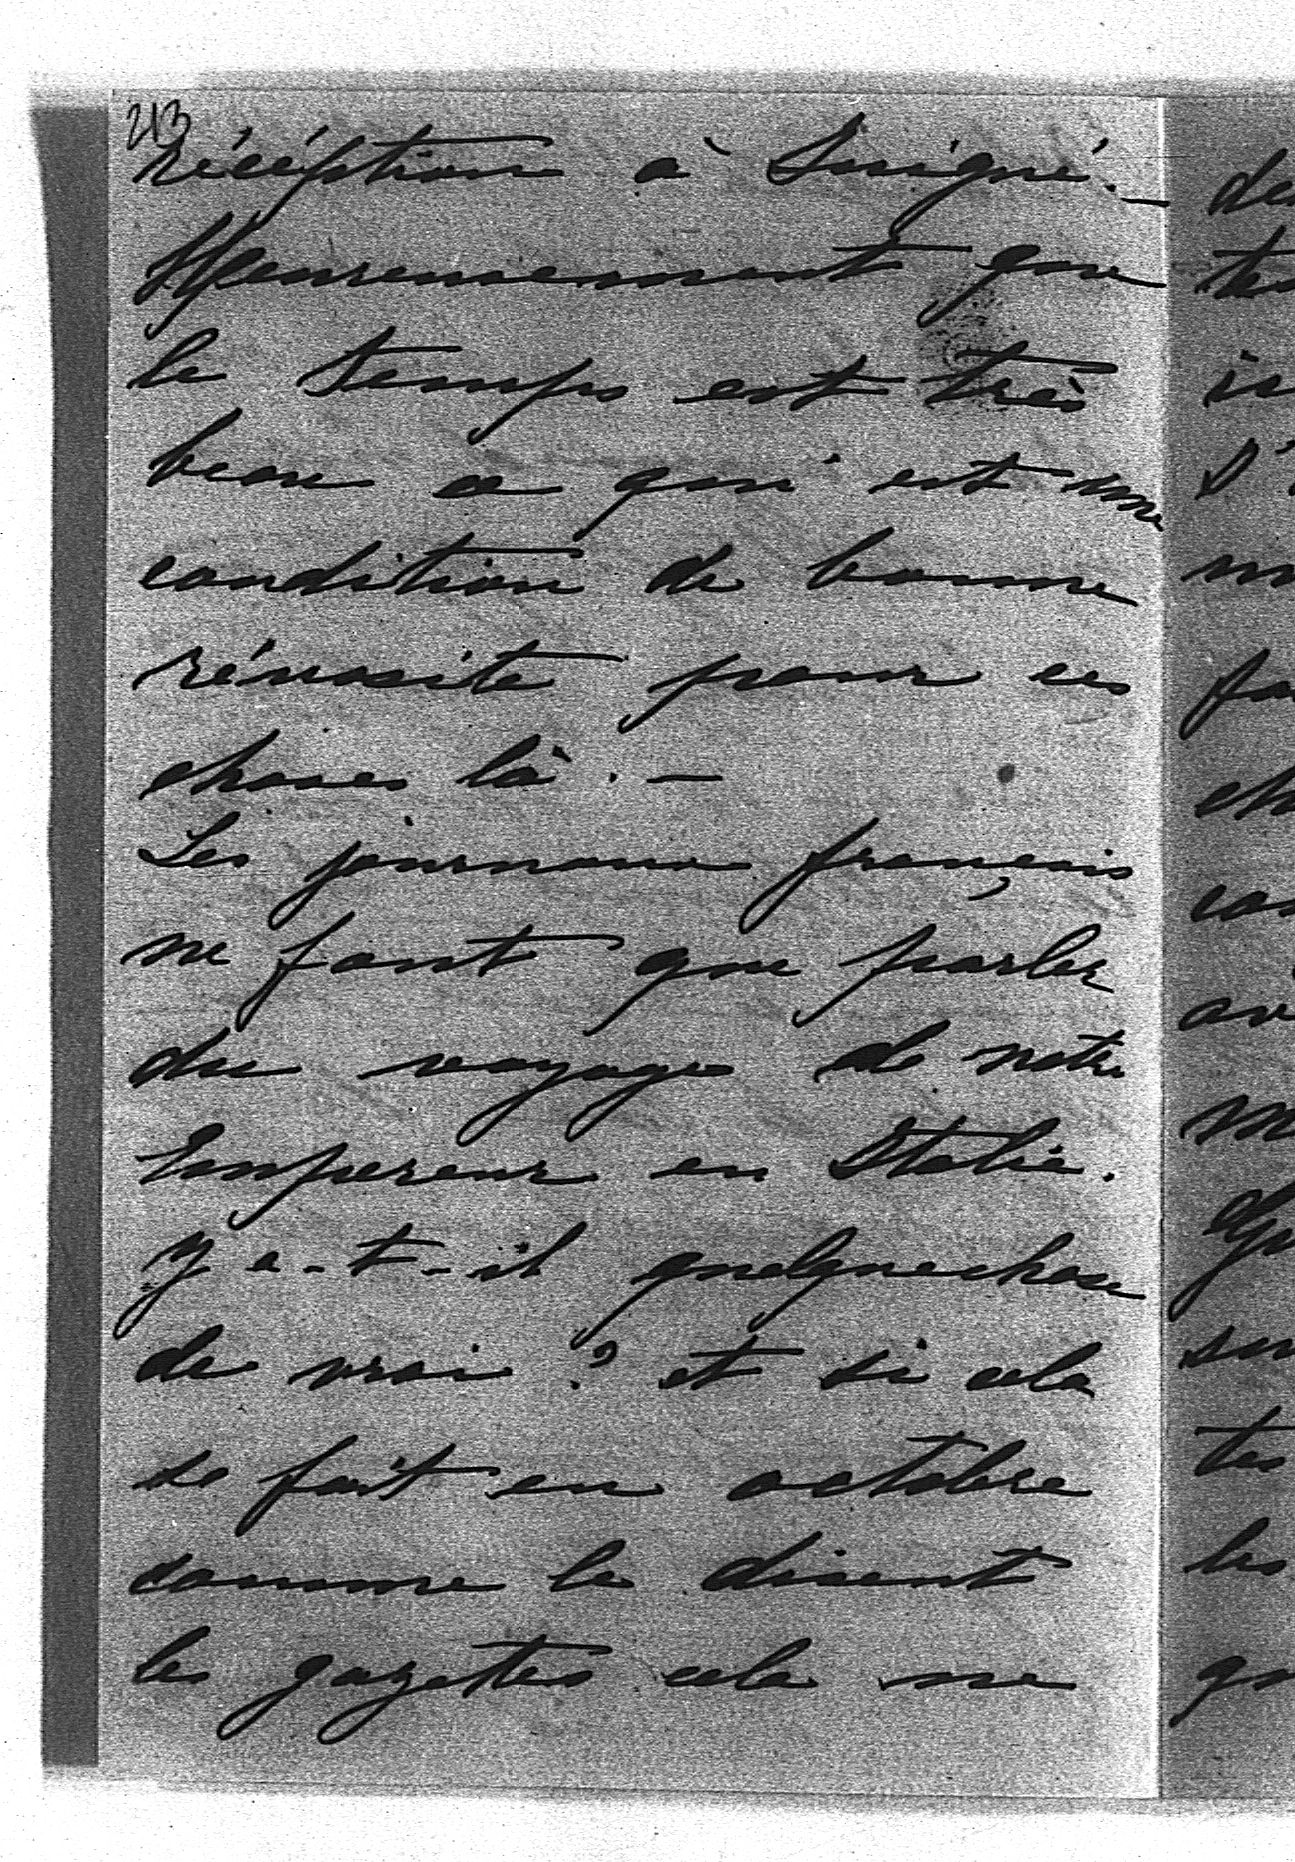 243
récéption à
Heureusement que
le temps est très
beau ce qui est une
condition de bonne
réussite pour ces
choses là. —
Les journaux français
ne font que parler
du voyage de notre
Empereur en Italie.
Y a-t-il quelquechose
de vrai ? et si cela
se fait en octobre
comme le disent
les gazettes cela me